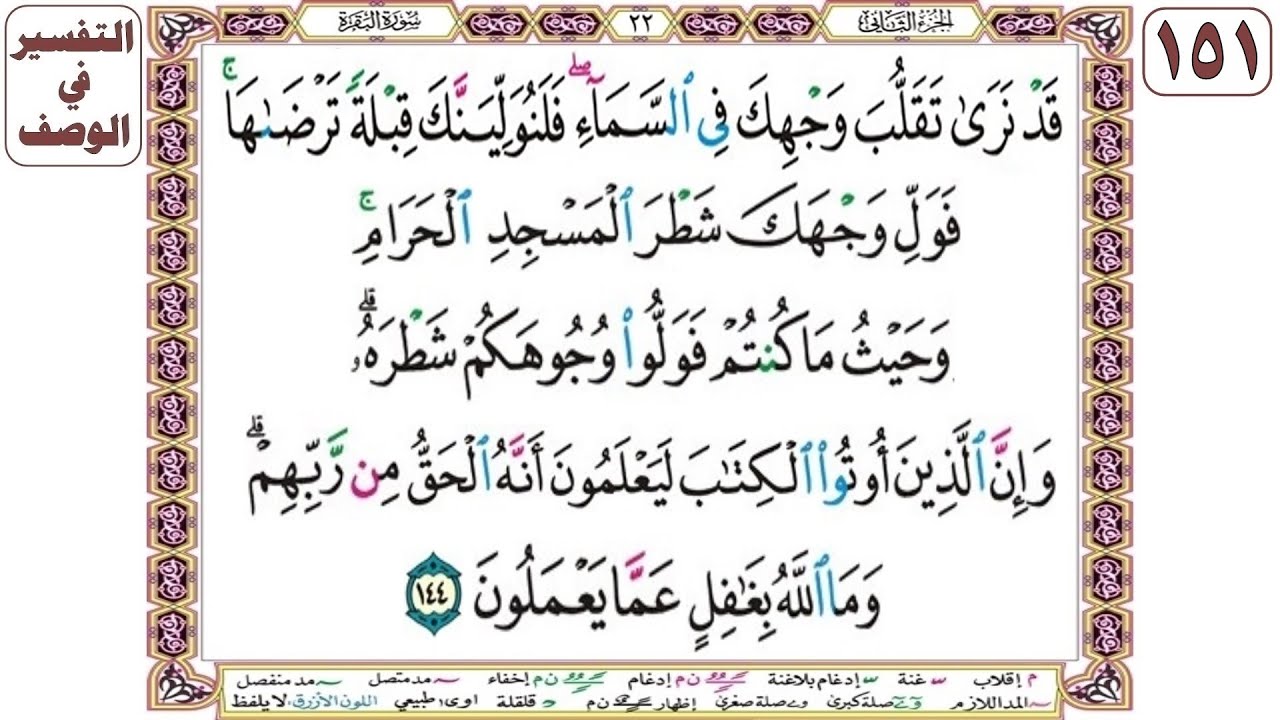 التفسير
في
الوصف
الجزء الثاني
٢٢
سورة البقرة
١٥١
قَدْ نَرَىٰ تَقَلُّبَ وَجْهِكَ فِي ٱلسَّمَآءِ ۖ فَلَنُوَلِّيَنَّكَ قِبْلَةً تَرْضَىٰهَا ۚ
فَوَلِّ وَجْهَكَ شَطْرَ ٱلْمَسْجِدِ ٱلْحَرَامِ ۚ
وَحَيْثُ مَا كُنتُمْ فَوَلُّوا۟ وُجُوهَكُمْ شَطْرَهُۥ ۗ
وَإِنَّ ٱلَّذِينَ أُوتُوا۟ ٱلْكِتَٰبَ لَيَعْلَمُونَ أَنَّهُ ٱلْحَقُّ مِن رَّبِّهِمْ ۗ
وَمَا ٱللَّهُ بِغَٰفِلٍ عَمَّا يَعْمَلُونَ ١٤٤
م إقلاب ّ غنة ّ إدغام بلاغنة ن م إدغام ن م إخفاء ~ مد متصل ~ مد منفصل
~ المد اللازم صلة كبرى صلة صغرى إظهار ن م قلقلة اوى: طبيعي اللون الأزرق: لا يلفظ